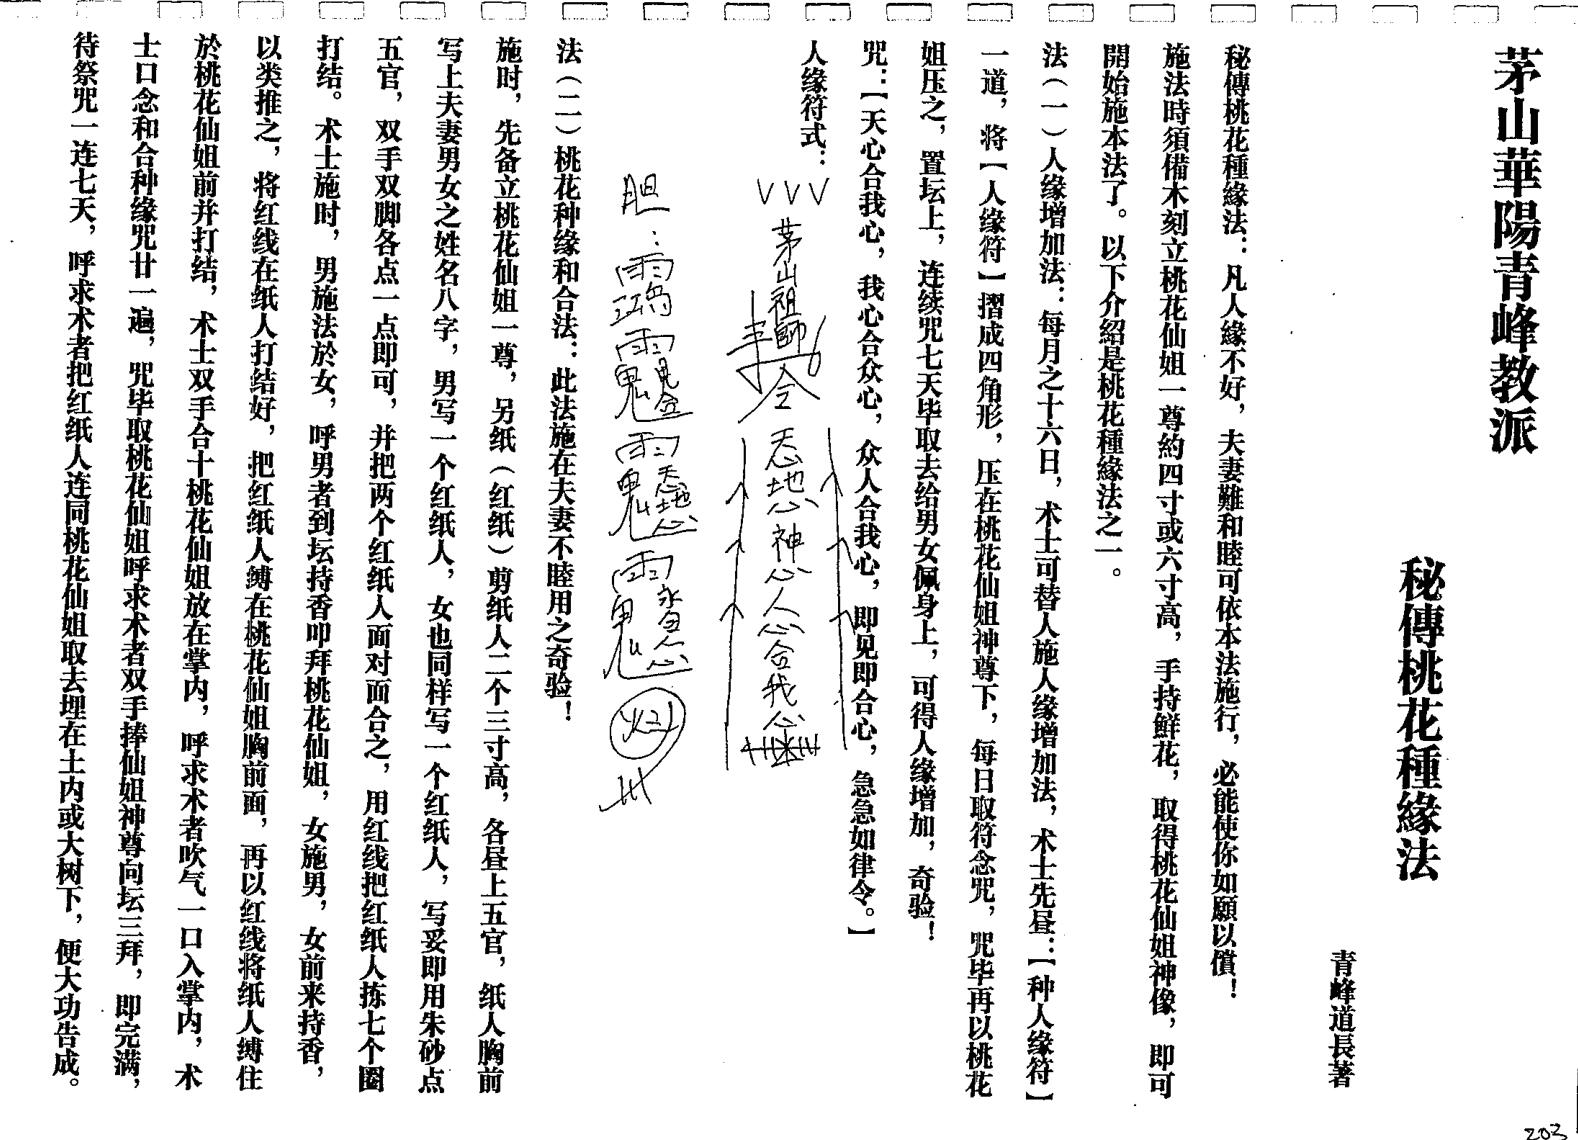 茅山華陽青峰教派
秘傳桃花種緣法
青峰道長著
秘傳桃花種緣法：凡人緣不好，夫妻難和睦可依本法施行，必能使你如願以償！
施法時須備木刻立桃花仙姐一尊約四寸或六寸高，手持鮮花，取得桃花仙姐神像，即可
開始施本法了。以下介紹是桃花種緣法之一。
法（一）人缘增加法：每月之十六日，术士可替人施人缘增加法，术士先昼：【种人缘符】
一道，将【人缘符】摺成四角形，压在桃花仙姐神尊下，每日取符念咒，咒毕再以桃花
姐压之，置坛上，连续咒七天毕取去给男女佩身上，可得人缘增加，奇验！
咒：【天心合我心，我心合众心，众人合我心，即见即合心，急急如律令。】
人缘符式：
茅山祖師
令
天心地心神心人心合我心
胆：
法（二）桃花种缘和合法：此法施在夫妻不睦用之奇验！
施时，先备立桃花仙姐一尊，另纸（红纸）剪纸人二个三寸高，各昼上五官，纸人胸前
写上夫妻男女之姓名八字，男写一个红纸人，女也同样写一个红纸人，写妥即用朱砂点
五官，双手双脚各点一点即可，并把两个红纸人面对面合之，用红线把红纸人拣七个圈
打结。术士施时，男施法於女，呼男者到坛持香叩拜桃花仙姐，女施男，女前来持香，
以类推之，将红线在纸人打结好，把红纸人缚在桃花仙姐胸前面，再以红线将纸人缚住
於桃花仙姐前并打结，术士双手合十桃花仙姐放在掌内，呼求术者吹气一口入掌内，术
士口念和合种缘咒廿一遍，咒毕取桃花仙姐呼求术者双手捧仙姐神尊向坛三拜，即完满，
待祭咒一连七天，呼求术者把红纸人连同桃花仙姐取去埋在土内或大树下，便大功告成。
203